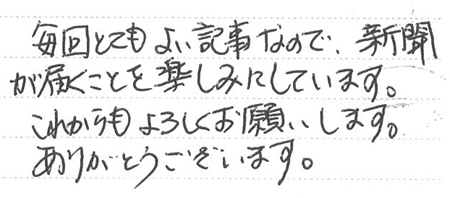 毎回とてもよい記事なので、新聞
が届くことを楽しみにしています。
これからもよろしくお願いします。
ありがとうございます。